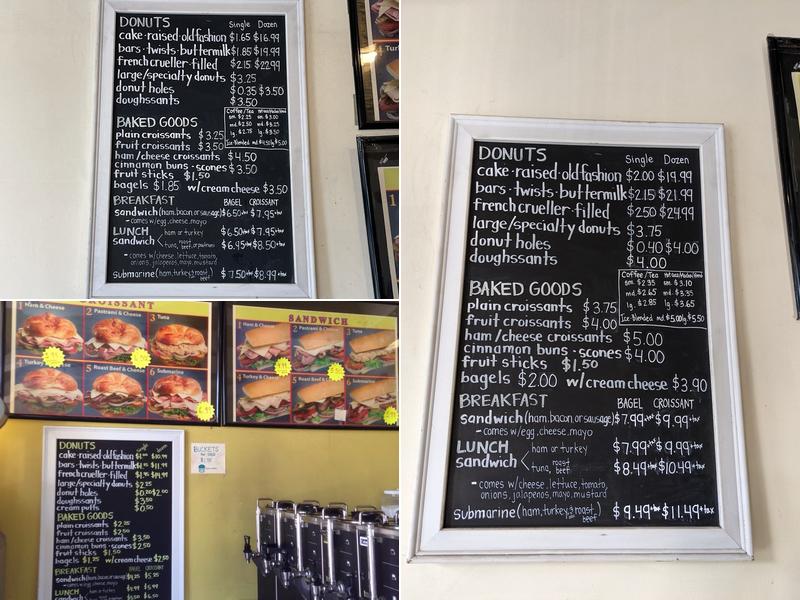 DONUTS Single Dozen
cake·raised·old fashion $1.65 $16.99
bars·twists·buttermilk $1.85 $19.99
french crueller·filled $2.15 $22.99
large/specialty donuts $3.25
donut holes $0.35 $3.50
doughssants $3.50
Coffee/Tea
sm. $2.25 sm. $3.00
md. $2.50 md. $3.25
lg. $2.75 lg. $3.50
Ice-Blended
BAKED GOODS
plain croissants $3.25
fruit croissants $3.50
ham/cheese croissants $4.50
cinnamon buns·scones $3.50
fruit sticks $1.50
bagels $1.85 w/cream cheese $3.50
BREAKFAST BAGEL CROISSANT
sandwich (ham, bacon, or sausage) $6.50+tax $7.95+tax
- comes w/egg, cheese, mayo
LUNCH ham or turkey $6.50+tax $7.95+tax
sandwich tuna, roast beef, or pastrami $6.95+tax $8.50+tax
- comes w/ cheese, lettuce, tomato,
onions, jalapenos, mayo, mustard
submarine (ham, turkey, & roast beef) $7.50+tax $8.99+tax
DONUTS Single Dozen
cake·raised·old fashion $2.00 $19.99
bars·twists·buttermilk $2.15 $21.99
french crueller·filled $2.50 $24.99
large/specialty donuts $3.75
donut holes $0.40 $4.00
doughssants $4.00
Coffee/Tea
sm. $2.35 sm. $3.10
md. $2.65 md. $3.35
lg. $2.85 lg. $3.65
Ice-Blended md. $5.00 lg. $5.50
BAKED GOODS
plain croissants $3.75
fruit croissants $4.00
ham/cheese croissants $5.00
cinnamon buns·scones $4.00
fruit sticks $1.50
bagels $2.00 w/cream cheese $3.90
BREAKFAST BAGEL CROISSANT
sandwich (ham, bacon, or sausage) $7.99+tax $9.99+tax
- comes w/egg, cheese, mayo
LUNCH ham or turkey $7.99+tax $9.99+tax
sandwich tuna, roast beef $8.49+tax $10.49+tax
- comes w/ cheese, lettuce, tomato,
onions, jalapenos, mayo, mustard
submarine (ham, turkey, & roast beef) $9.49+tax $11.49+tax
CROISSANT
1 Ham & Cheese 2 Pastrami & Cheese 3 Tuna
4 Turkey & Cheese 5 Roast Beef & Cheese 6 Submarine
SANDWICH
1 Ham & Cheese 2 Pastrami & Cheese 3 Tuna
4 Turkey & Cheese 5 Roast Beef & Cheese 6 Submarine
BUCKETS
DONUTS single dozen
cake·raised·old fashion $10.99
bars·twists·buttermilk $11.99
french crueller·filled $14.99
large/specialty donuts $2.25
donut holes $0.20 $2.00
doughssants $3.50
cream puffs $0.50
BAKED GOODS
plain croissants $2.25
fruit croissants $2.50
ham/cheese croissants $3.50
cinnamon buns·scones $2.50
fruit sticks $1.50
bagels $1.25 w/cream cheese $2.50
BREAKFAST BAGEL CROISSANT
sandwich (ham, bacon, or sausage) $4.25 $5.25
- comes w/egg, cheese, mayo
LUNCH ham or turkey
sandwich